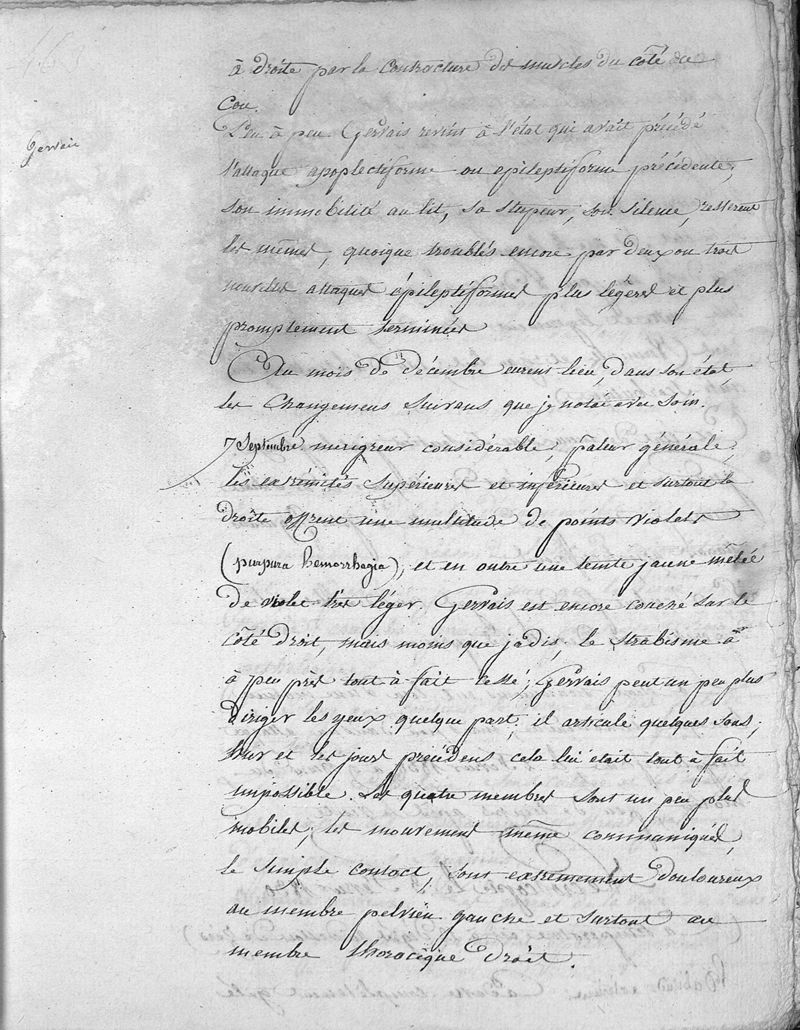 à droite par la contracture des muscles du côté du
Cou.
Peu à peu Gervais revint à l'état qui avait précédé
Gervais
l'attaque apoplectiforme ou épileptiforme précédente;
son immobilité au lit, sa stupeur, son silence, restèrent
les mêmes, quoique troublés encore par deux ou trois
nouvelles attaques épileptiformes plus légères et plus
promptement terminées
Au mois de décembre eurent lieu, dans son état,
les changemens suivans que je notai avec soin.
7 Septembre. maigreur considérable, pâleur générale,
les extrémités supérieures et inférieures et surtout la
droite offrent une multitude de points violets
(purpura hemorrhagia), et en outre une teinte jaune mêlée
de violet très léger. Gervais est encore couché sur le
côté droit, mais moins que jadis, le strabisme a
à peu près tout à fait cessé; Gervais peut un peu plus
diriger les yeux quelque part, il articule quelques sons;
hier et les jours précédens cela lui était tout à fait
impossible. Les quatre membres sont un peu plus
mobiles, les mouvemens même communiqués,
le simple contact, sont extrêmement douloureux
au membre pelvien gauche et surtout au
membre thoracique droit.